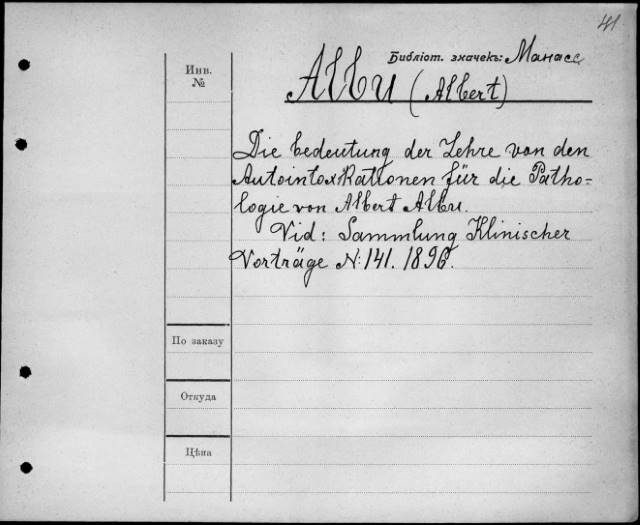 41
Библіот. значекъ: Манасс
Инв.
№
Albu (Albert)
Die bedeutung der Lehre von den
Autointoxikationen für die Patho-
logie von Albert Albu.
Vid: Sammlung Klinischer
Vorträge N: 141. 1896.
По заказу
Откуда
Цѣна